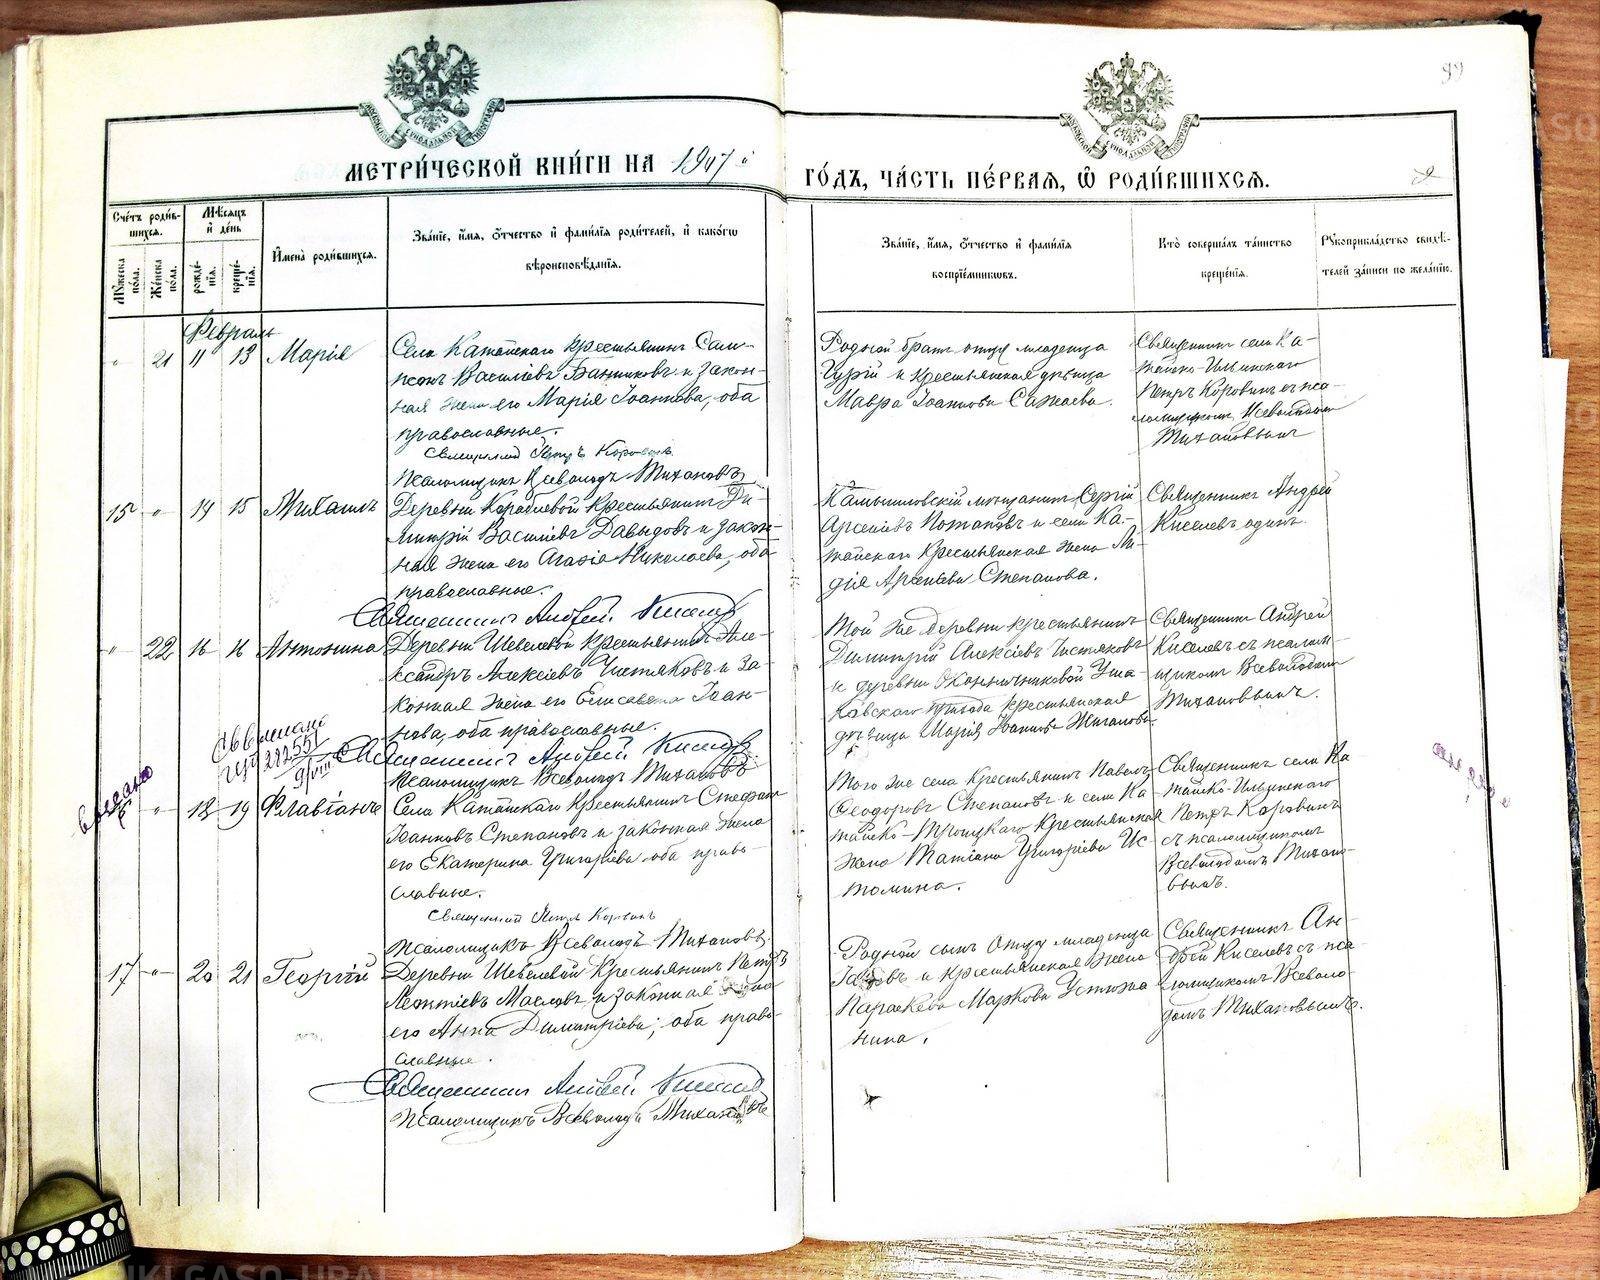 99
МЕТРИ́ЧЕСКОЙ КНИ́ГИ НА 1907 й
ГО́ДЪ, ЧА́СТЬ ПЕ́РВАѦ, Ѡ҆ РОДИ́ВШИХСѦ.
Сче́тъ роди́в-
шихся.
Мѣ́сяцъ
и҆ де́нь
Мꙋ́жеска по́ла.
Же́нска по́ла.
рожде́-
нїѧ.
креще́-
нїѧ.
И҆мена̀ роди́вшихся.
Зва́нїе, и҆́мя, ѻ҆́тчество и҆ фами́лїя роди́телей, и҆ како́гѡ
вѣроисповѣ́данїя.
Зва́нїе, и҆́мя, ѻ҆́тчество и҆ фами́лїя
воспрїе́мниковъ.
Кто̀ соверша́лъ та́инство
креще́нїя.
Рꙋкоприкла́дство свидѣ́-
телей за́писи по жела́нїю.
Февраль
" 21 11 13 Марія
Села Катайскаго крестьянинъ Сам-
псонъ Васильевъ Банниковъ и закон-
ная жена его Марія Іоаннова, оба
православные.
Священникъ Петръ Коровинъ
Псаломщикъ Всеволодъ Тихановъ
Родной братъ отца младенца
Гурій и крестьянская дѣвица
Мавра Іоаннова Сажаева.
Священникъ села Ка-
тайско-Ильинскаго
Петръ Коровинъ съ пса-
ломщикомъ Всеволодомъ
Тихановымъ
15 " 14 15 Михаилъ
Деревни Кораблевой крестьянинъ Ди-
митрій Васильевъ Давыдовъ и закон-
ная жена его Агафія Николаева, оба
православные.
Священникъ Андрей Киселевъ
Камышловскій мѣщанинъ Сергій
Арсеніевъ Потаповъ и села Ка-
тайскаго крестьянская жена Ли-
дія Арсеніева Степанова.
Священникъ Андрей
Киселевъ одинъ.
" 22 16 16 Антонина
Деревни Шевелевой крестьянинъ Але-
ксандръ Алексіевъ Чистяковъ и за-
конная жена его Елисавета Іоан-
нова, оба православные.
Священникъ Андрей Киселевъ
Псаломщикъ Всеволодъ Тихановъ
Той же деревни крестьянинъ
Димитрій Алексіевъ Чистяковъ
и деревни Оконничниковой Уша-
ковскаго прихода крестьянская
дѣвица Марія Іоаннова Жиганова.
Священникъ Андрей
Киселевъ съ псалом-
щикомъ Всеволодомъ
Тихановымъ.
282551
9/VIII
16 " 18 19 Флавіанъ
Села Катайскаго крестьянинъ Стефанъ
Іоанновъ Степановъ и законная жена
его Екатерина Григоріева оба право-
славные.
Священникъ Петръ Коровинъ
Псаломщикъ Всеволодъ Тихановъ.
Того же села крестьянинъ Павелъ
Ѳеодоровъ Степановъ и села Ка-
тайско-Троицкаго крестьянская
жена Татіана Григоріева Ис-
томина.
Священникъ села Ка-
тайско-Ильинскаго
Петръ Коровинъ
съ псаломщикомъ
Всеволодомъ Тихано-
вымъ.
17 " 20 21 Георгій
Деревни Шевелевой крестьянинъ Петръ
Леонтіевъ Масловъ и законная жена
его Анна Димитріева; оба право-
славные.
Священникъ Андрей Киселевъ
Псаломщикъ Всеволодъ Тихановъ
Родной сынъ отца младенца
Іаковъ и крестьянская жена
Параскева Маркова Устюжа-
нина.
Священникъ Ан-
дрей Киселевъ съ пса-
ломщикомъ Всеволо-
домъ Тихановымъ.